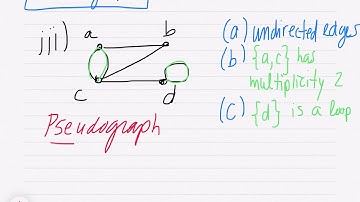 iii)
a
b
c
d
Pseudograph
(a) undirected edges
(b) {a,c} has
multiplicity 2
(C) {d} is a loop